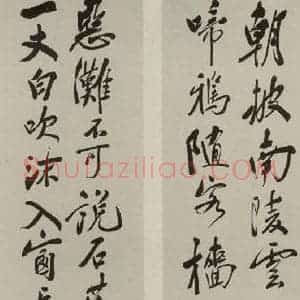 朝披南陵雲
啼鴉隨客檣
惡灘不可說石
一丈白吹沫入窗
Shufaziliao.com